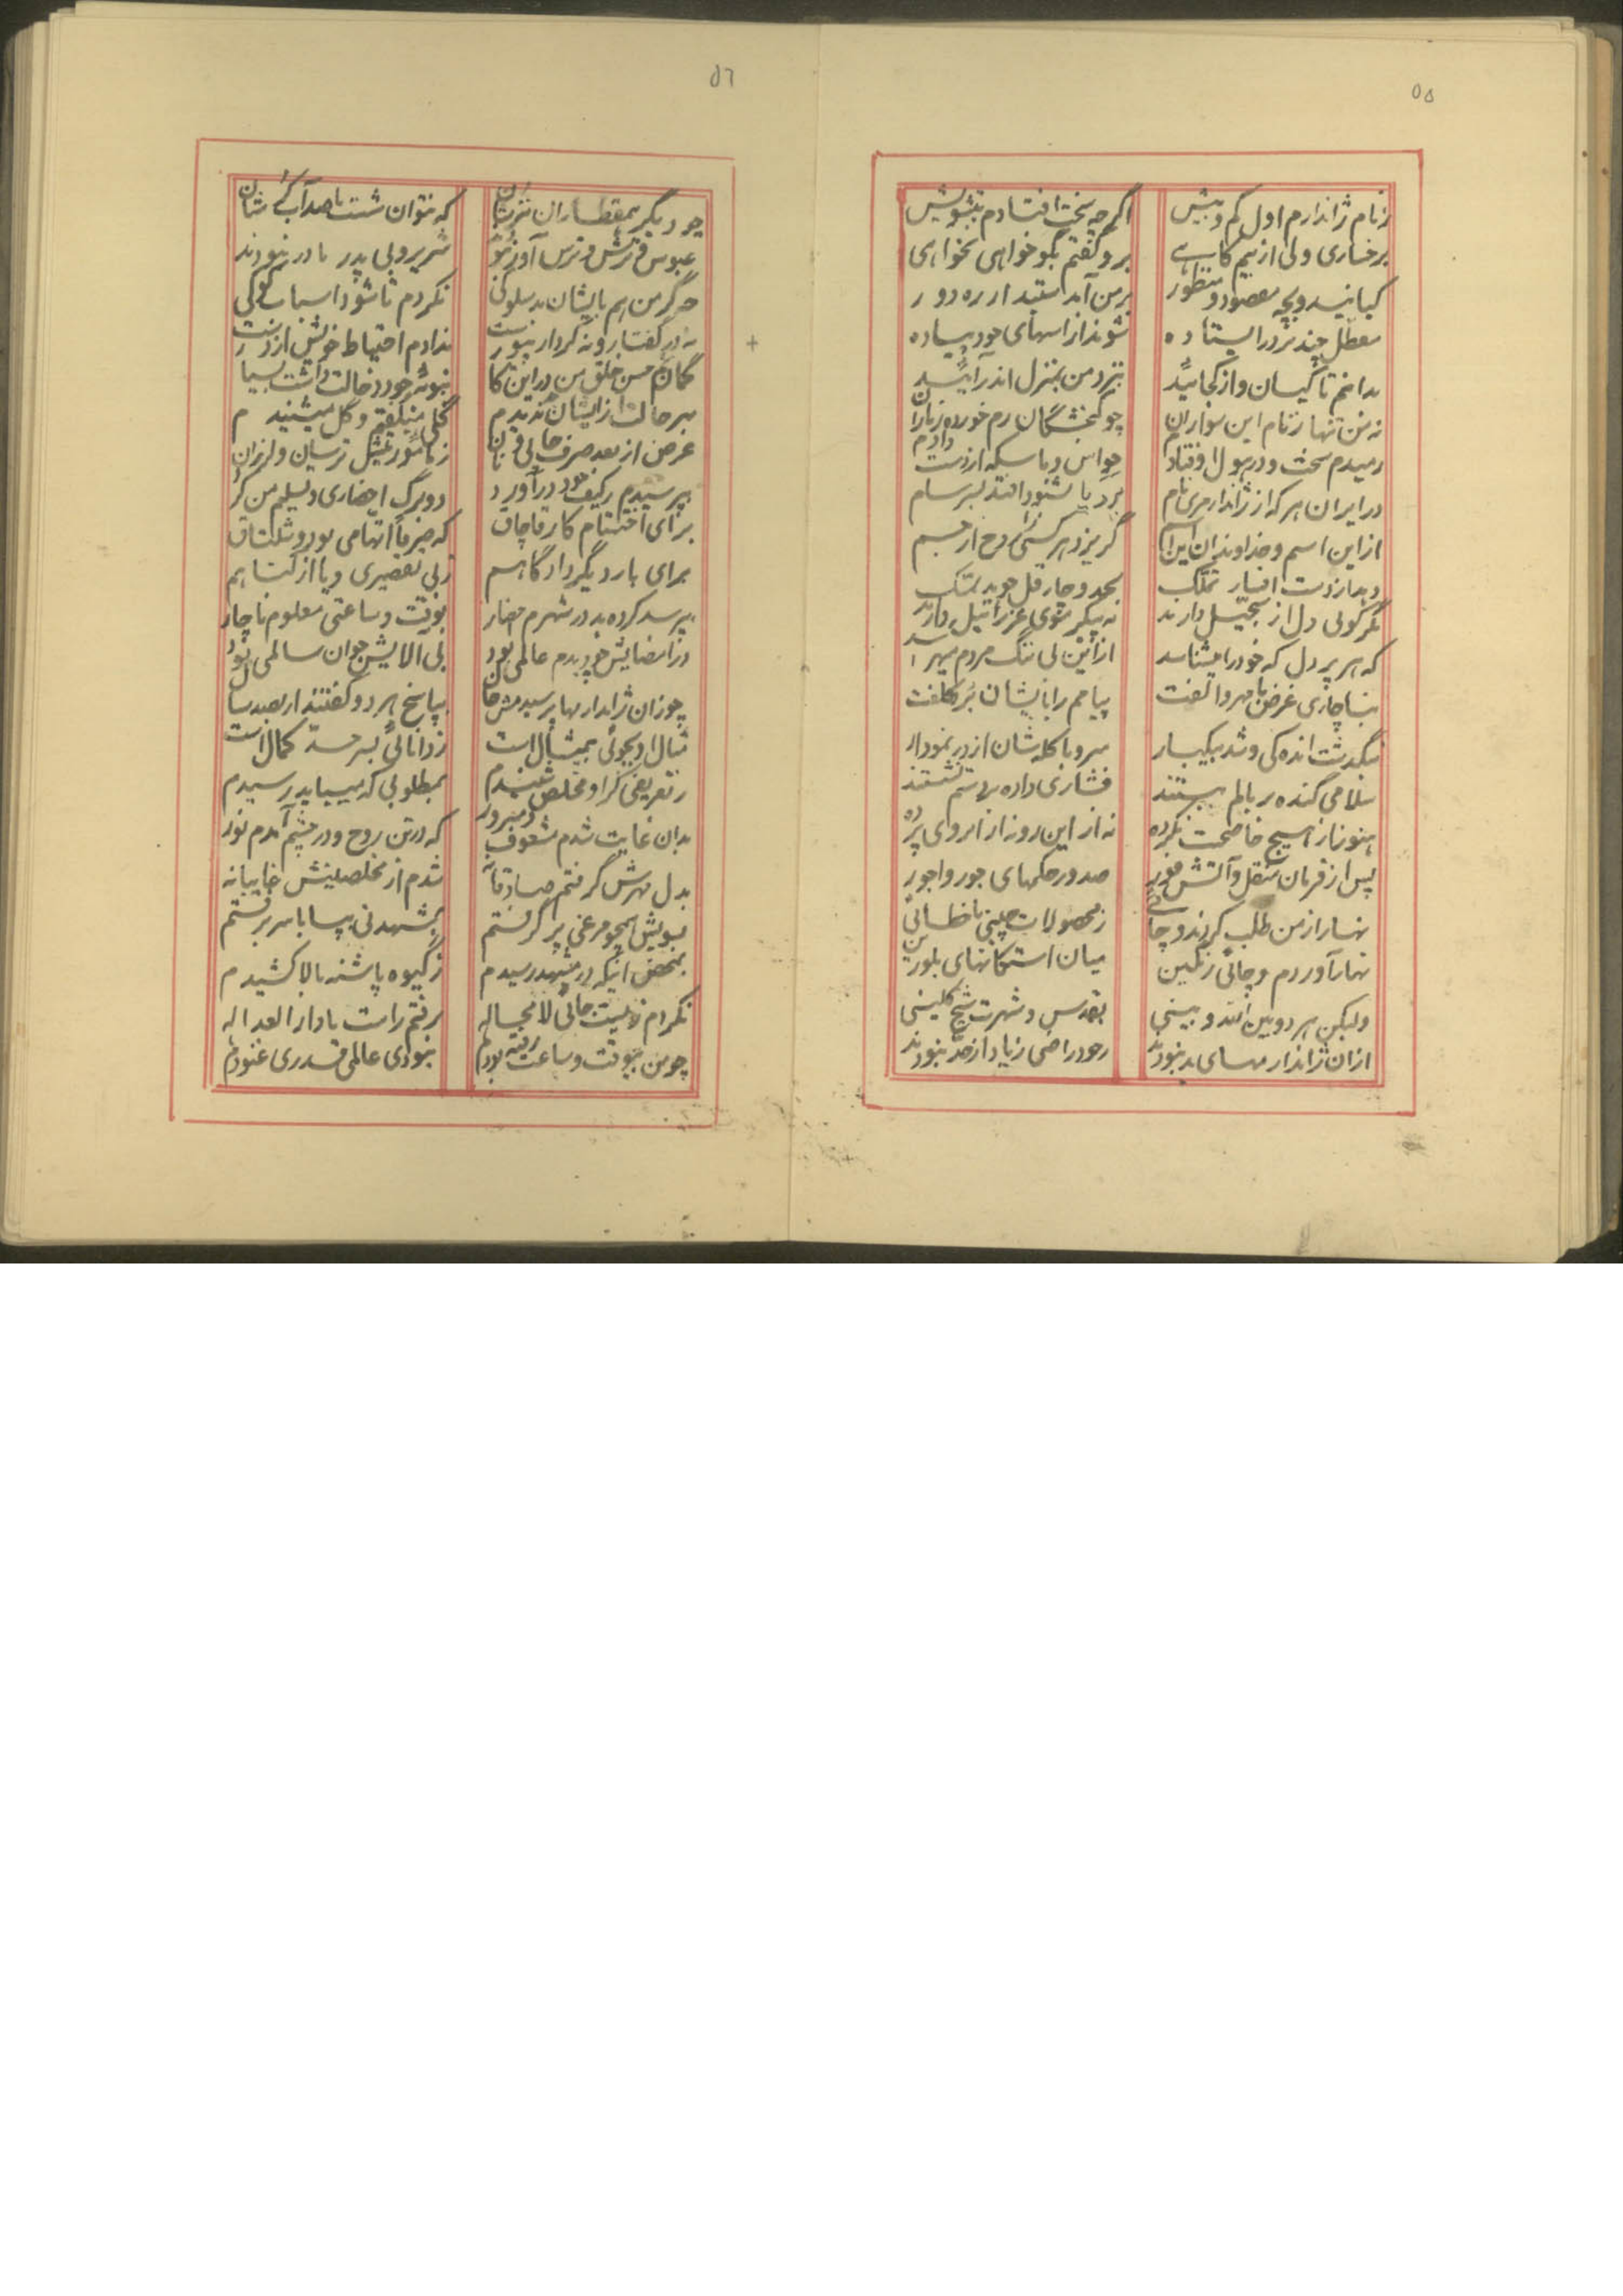 ۵۵
زنام ژاندارم اول کم و بیش
اگرچه سخت افتادم بتشویش
برخساری ولی از بیم کاهے
برو گفتم بگو خواهی نخواهی
کیانید و بچه مقصود و منظور
بر من آمدستید از ره دور
معطل چند نزد در ایستاده
شوند از اسبهای خود پیاده
بدانم تا کیسان و از کجائید
بنزد من بمنزل اندر آئید
نه من تنها ز نام این سواران
چو گنجشگان رم خورده ز باران
رمیدم سخت و در هول اوفتادم
حواس و ماسکه از دست دادم
در ایران هر که از ژاندارمری نام
برد یا بشنود افتد بسرسام
از این اسم و خداوندان این اسم
گریزد هر کسی روح از جسم
دهد از دست افسار تملک
بحمد و چار قل جوید تمسک
مگر گوئی دل از سجیل دارند
نه پیکر خوی عزرائیل دارند
که هر پر دل که خود را میشناسد
از این بی ننگ مردم میهراسد
بناچاری غرض با مهر و الفت
پیامم را بایشان برد کلفت
نگذشت اندکی و شد بیکبار
سر و با کله شان از در نمودار
سلامی گنده بر بالم ببستند
فشاری داده بر دستم نشستند
هنوز از هیچ جا صحبت نکرده
نه از این رو نه از ان روی پرده
پس از فرمان منقل و آتش فور
صدور حکمهای جور واجور
نهار از من طلب کردند و چائی
ز محصولات چینی یا خطائی
نهار آوردم و چائی رنگین
میان استکانهای بلورین
ولیکن هر دو بین الله و بینی
بقدس و شهرت شیخ کلینی
از ان ژاندارمهای بد نبودند
ز خود راضی زیاد از حد نبودند
۵٦
چو دیگر همقطاران نترشان
که نتوان شست با صد آب گر شان
عبوس و ترش و ترس آور نبودند
شریر و بی پدر مادر نبودند
مگر من هم بایشان بد سلوکی
نکردم تا شود اسباب کوکی
نه در گفتار و نه کردار نیوست
ندادم احتیاط خویش از دست
گمانم حسن خلق من در این کار
نبوند خود دخالت داشت بسیار
بهر حالت از ایشان بد ندیدم
گلی میگفتم و گل میشنیدم
غرض از بعد صرف چائی و نان
ز مأموریتش ترسان و لرزان
بپرسیدم ز کیف خود در آورد
دو برگ احضاری و تسلیم من کرد
برای اختتام کار قاچاق
که صرفاً اتهامی بود و شلتاق
برای بار دیگر دادگاهم
ز بی تقصیری و یا از گناهم
بپرسد کرده بد در شهرم احضار
بوقت و ساعتی معلوم ناچار
در امضایش چو دیدم عالمی بود
بی الایش جوان سالمی بود
چو زان ژاندارمها پرسیدمش حال
بپاسخ هر دو گفتند ار بصد سال
مثال او بجوئی بیمثال است
ز دانائی بسر حد کمال است
ز تعریفی کز او مخلص شنیدم
بمطلوبی که میباید رسیدم
بدان غایت شدم مشعوف و مسرور
که در تن روح و در چشم آمدم نور
بدل مهرش گرفتم صادقانه
شدم از مخلصینش غایبانه
بسویش همچو مرغی پر گرفتم
بمشهد نی بپا با سر برفتم
بمحض اینکه در مشهد رسیدم
ز گیوه پاشنه بالا کشیدم
نکردم زیست جائی لامحاله
برفتم راست با دار العداله
چو من بیوقت و ساعت رفته بودم
نبودی عالمی قدری غنودم